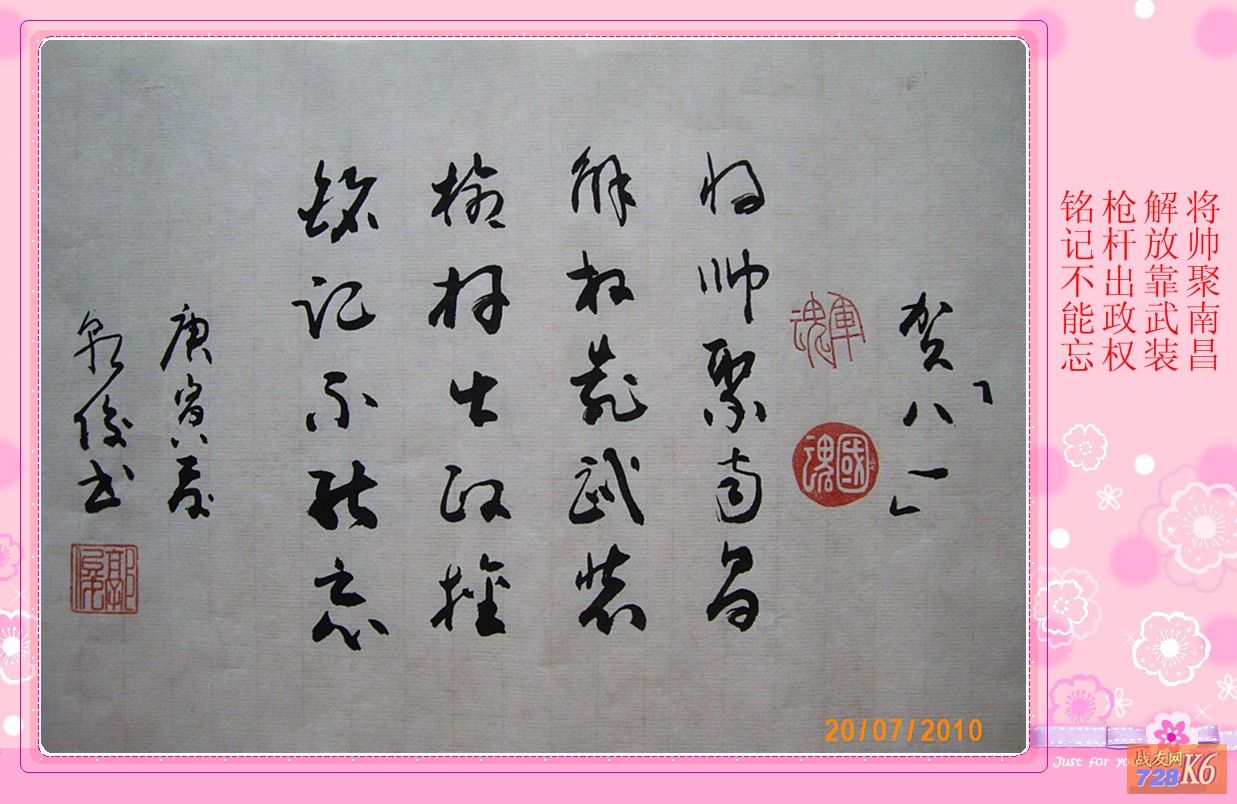 将帅聚南昌
解放靠武装
枪杆出政权
铭记不能忘
贺「八一」
軍魂
國魂
将帅聚南昌
解放靠武装
枪杆出政權
铭记不能忘
庚寅夏
俊书
20/07/2010
Just for you
战友网
728K6